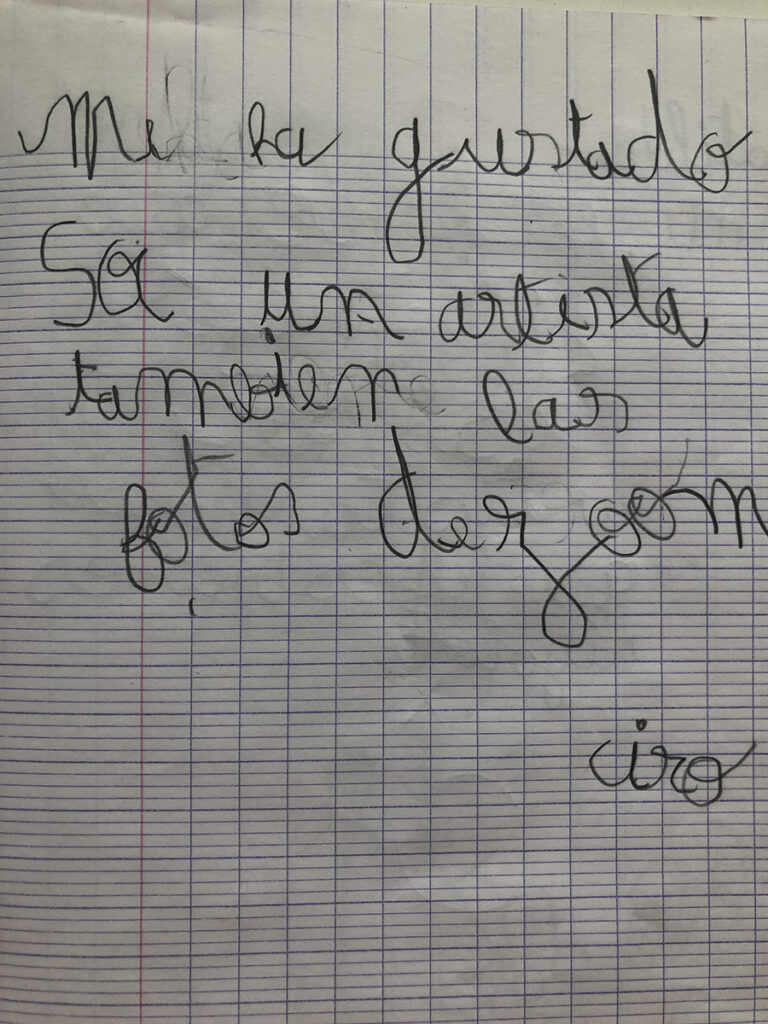 Mi ha gustado
Sa un artista
tambien las
fotos der gom
ciro